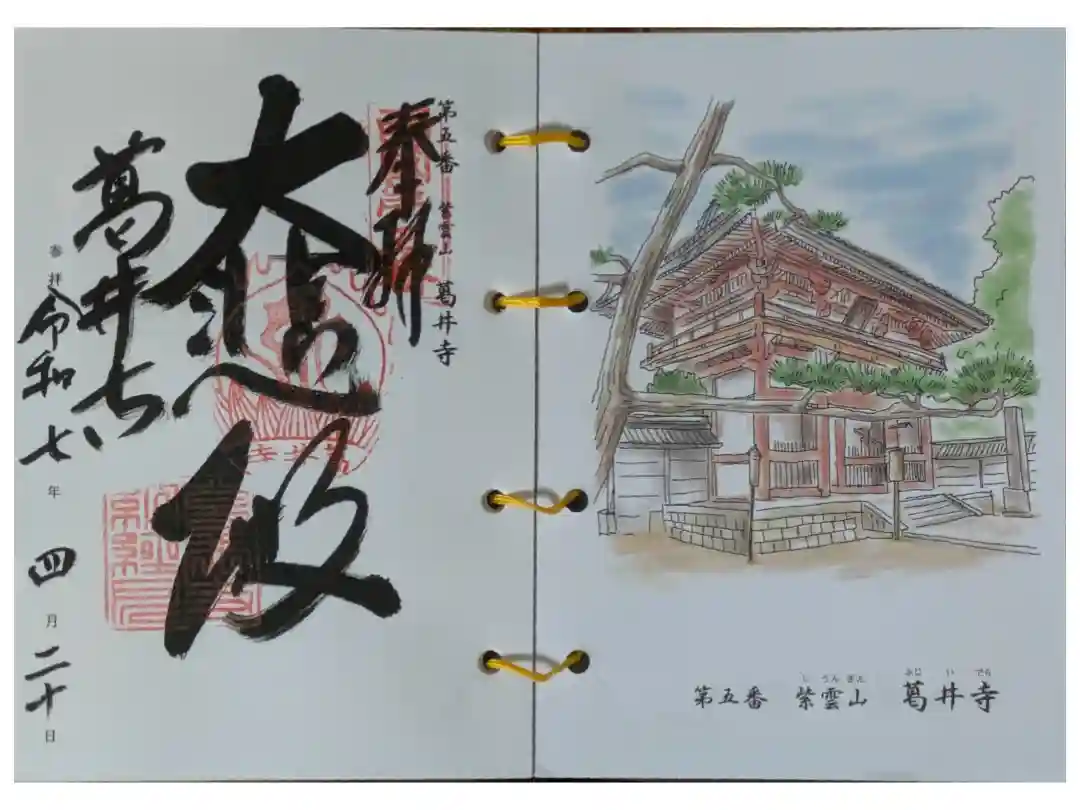 第五番 紫雲山 葛井寺
奉拝
大悲殿
葛井寺
参拝 令和七年四月二十日
第五番 紫雲山 葛井寺
し うん ざん
ふじ い でら